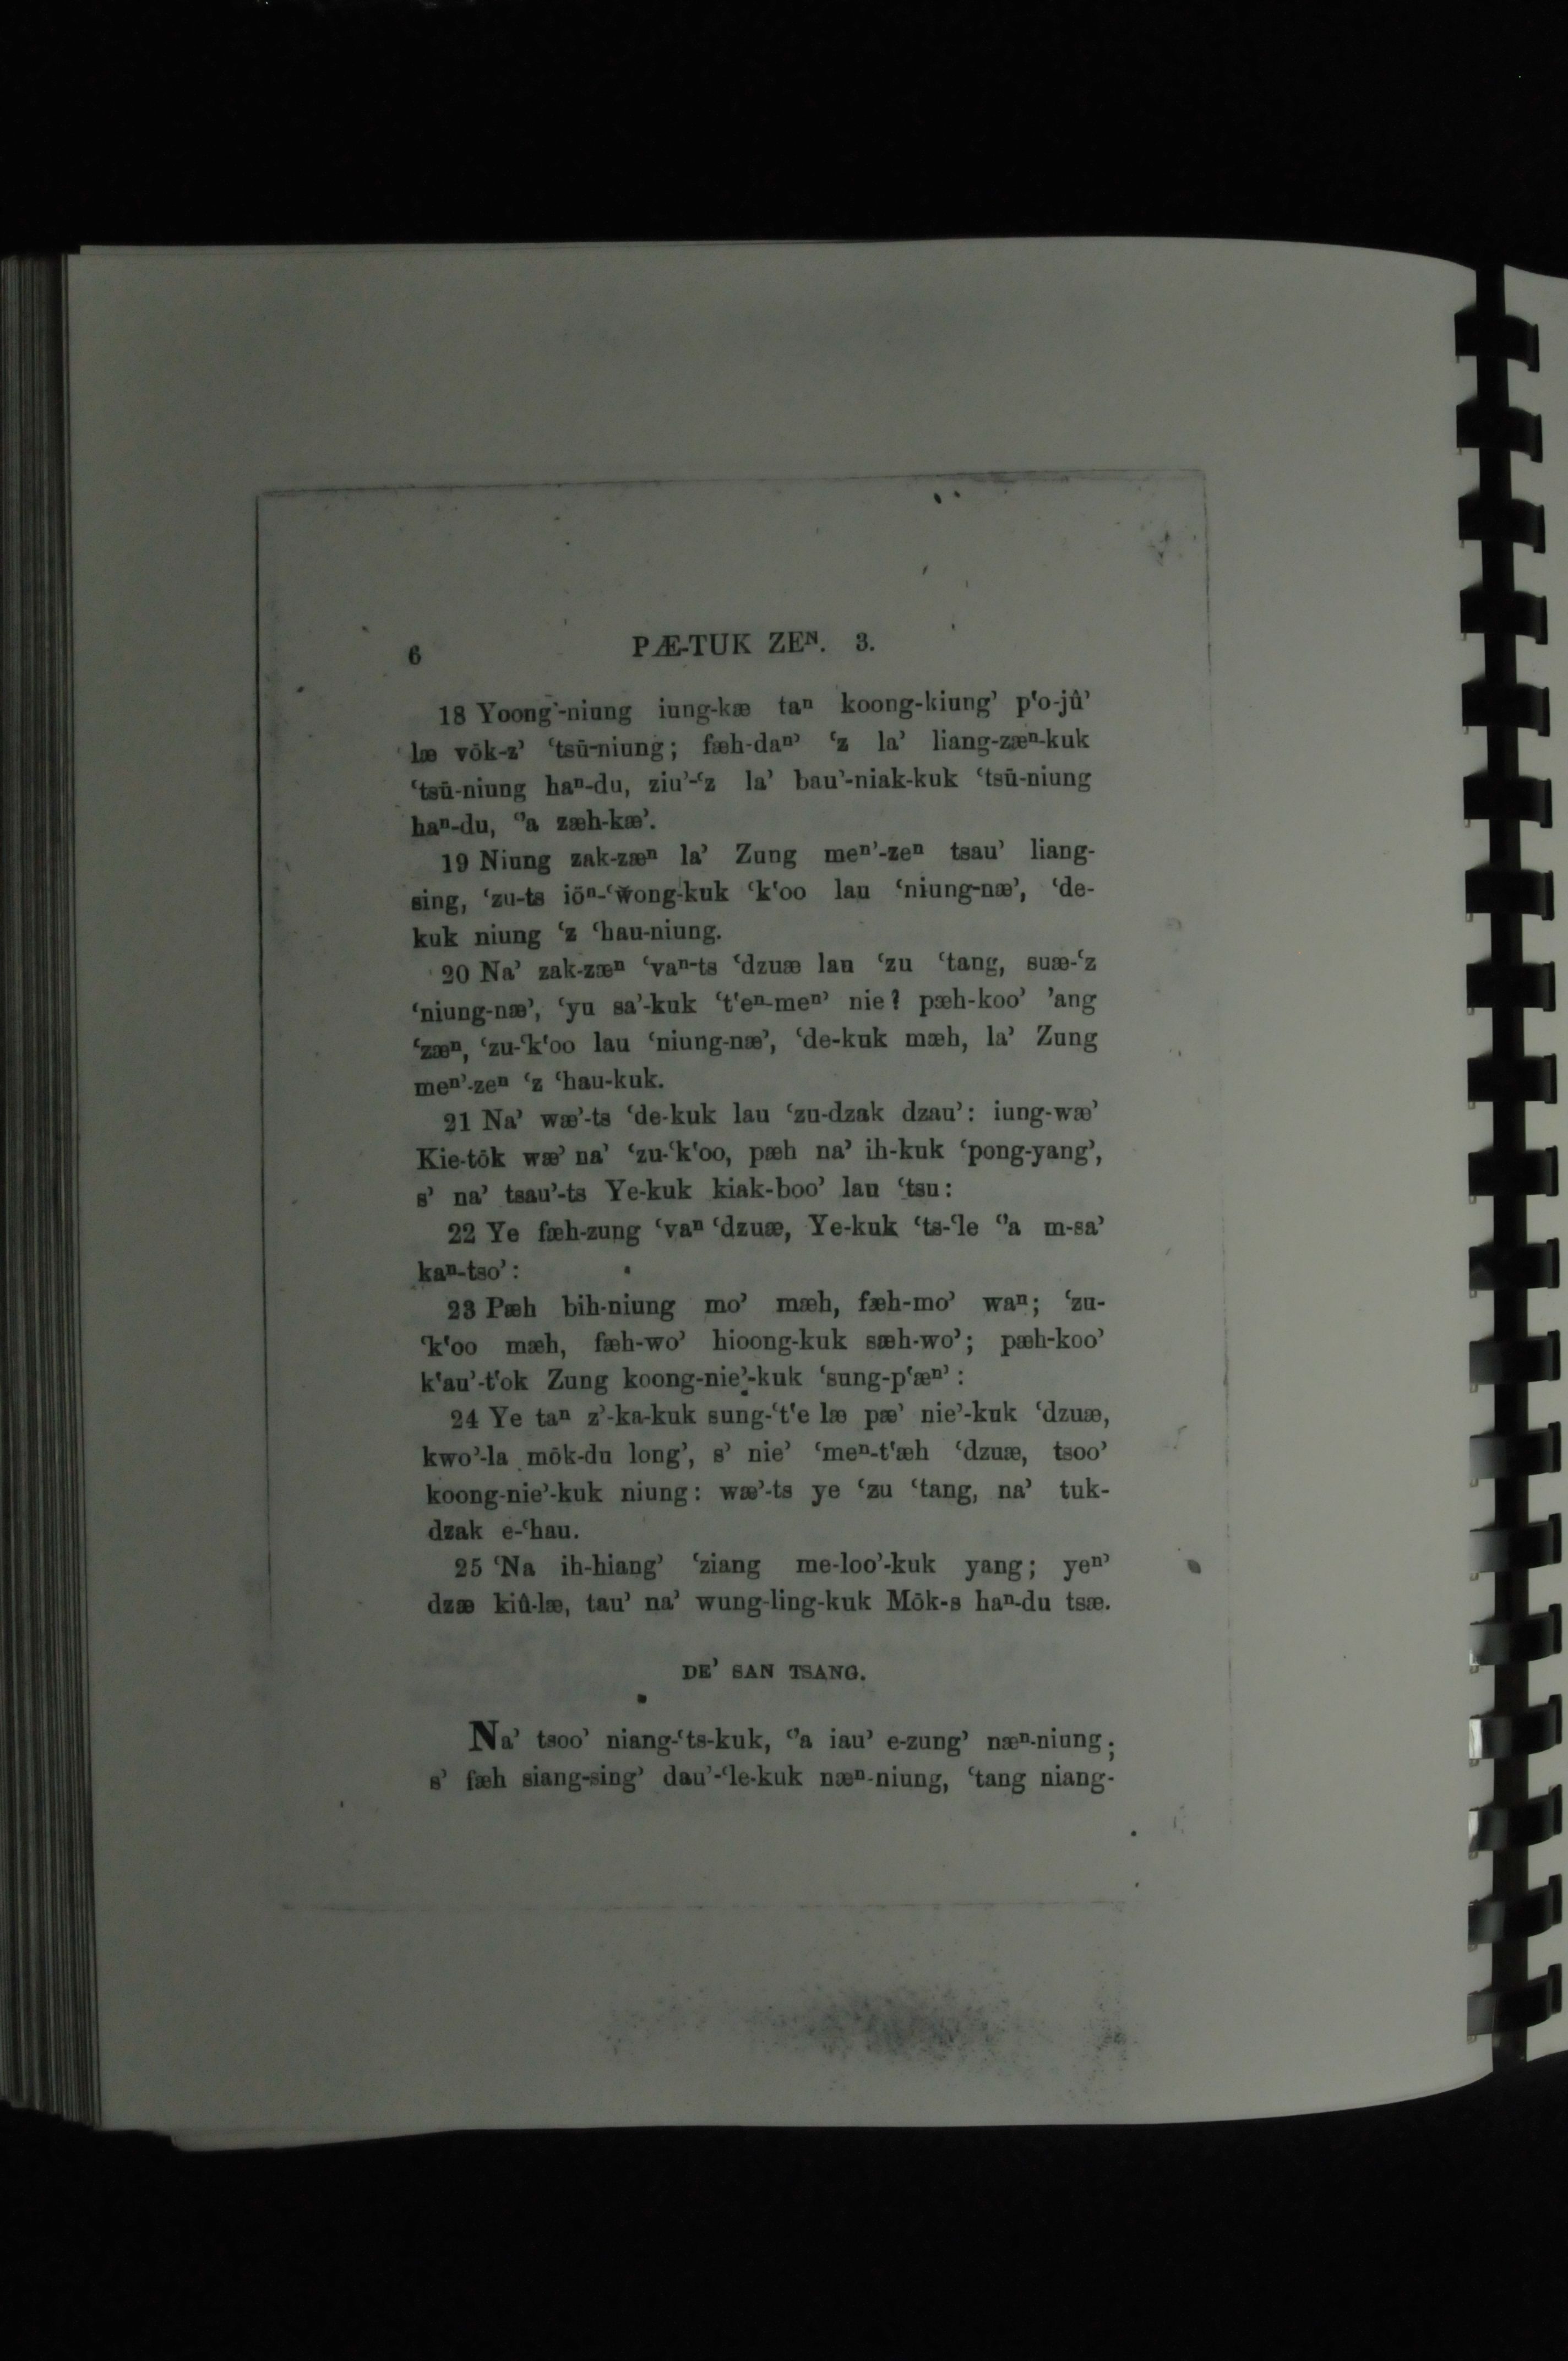 6 PÆ-TUK ZEᴺ. 3.
18 Yoong’-niung iung-kæ taⁿ koong-kiung’ p‘o-jû’
læ vōk-z’ ‘tsū-niung; fæh-daⁿ’ ‘z la’ liang-zæⁿ-kuk
‘tsū-niung haⁿ-du, ziu’-‘z la’ bau’-niak-kuk ‘tsū-niung
haⁿ-du, ‘’a zæh-kæ’.
19 Niung zak-zæⁿ la’ Zung meⁿ’-zeⁿ tsau’ liang-
sing, ‘zu-ts iöⁿ-‘wong-kuk ‘k‘oo lau ‘niung-næ’, ‘de-
kuk niung ‘z ‘hau-niung.
20 Na’ zak-zæⁿ ‘vaⁿ-ts ‘dzuæ lau ‘zu ‘tang, suæ-‘z
‘niung-næ’, ‘yu sa’-kuk ‘t‘eⁿ-meⁿ’ nie? pæh-koo’ ’ang
‘zæⁿ, ‘zu-‘k‘oo lau ‘niung-næ’, ‘de-kuk mæh, la’ Zung
meⁿ’-zeⁿ ‘z ‘hau-kuk.
21 Na’ wæ’-ts ‘de-kuk lau ‘zu-dzak dzau’: iung-wæ’
Kie-tōk wæ’ na’ ‘zu-‘k‘oo, pæh na’ ih-kuk ‘pong-yang’,
s’ na’ tsau’-ts Ye-kuk kiak-boo’ lau ‘tsu:
22 Ye fæh-zung ‘vaⁿ ‘dzuæ, Ye-kuk ‘ts-‘le ‘’a m-sa’
kaⁿ-tso’:
23 Pæh bih-niung mo’ mæh, fæh-mo’ waⁿ; ‘zu-
‘k‘oo mæh, fæh-wo’ hioong-kuk sæh-wo’; pæh-koo’
k‘au’-t‘ok Zung koong-nie’-kuk ‘sung-p‘æⁿ’:
24 Ye taⁿ z’-ka-kuk sung-‘t‘e læ pæ’ nie’-kuk ‘dzuæ,
kwo’-la mōk-du long’, s’ nie’ ‘meⁿ-t‘æh ‘dzuæ, tsoo’
koong-nie’-kuk niung: wæ’-ts ye ‘zu ‘tang, na’ tuk-
dzak e-‘hau.
25 ‘Na ih-hiang’ ‘ziang me-loo’-kuk yang; yeⁿ’
dzæ kiû-læ, tau’ na’ wung-ling-kuk Mōk-s haⁿ-du tsæ.
DE’ SAN TSANG.
Na’ tsoo’ niang-‘ts-kuk, ‘’a iau’ e-zung’ næⁿ-niung;
s’ fæh siang-sing’ dau’-‘le-kuk næⁿ-niung, ‘tang niang-